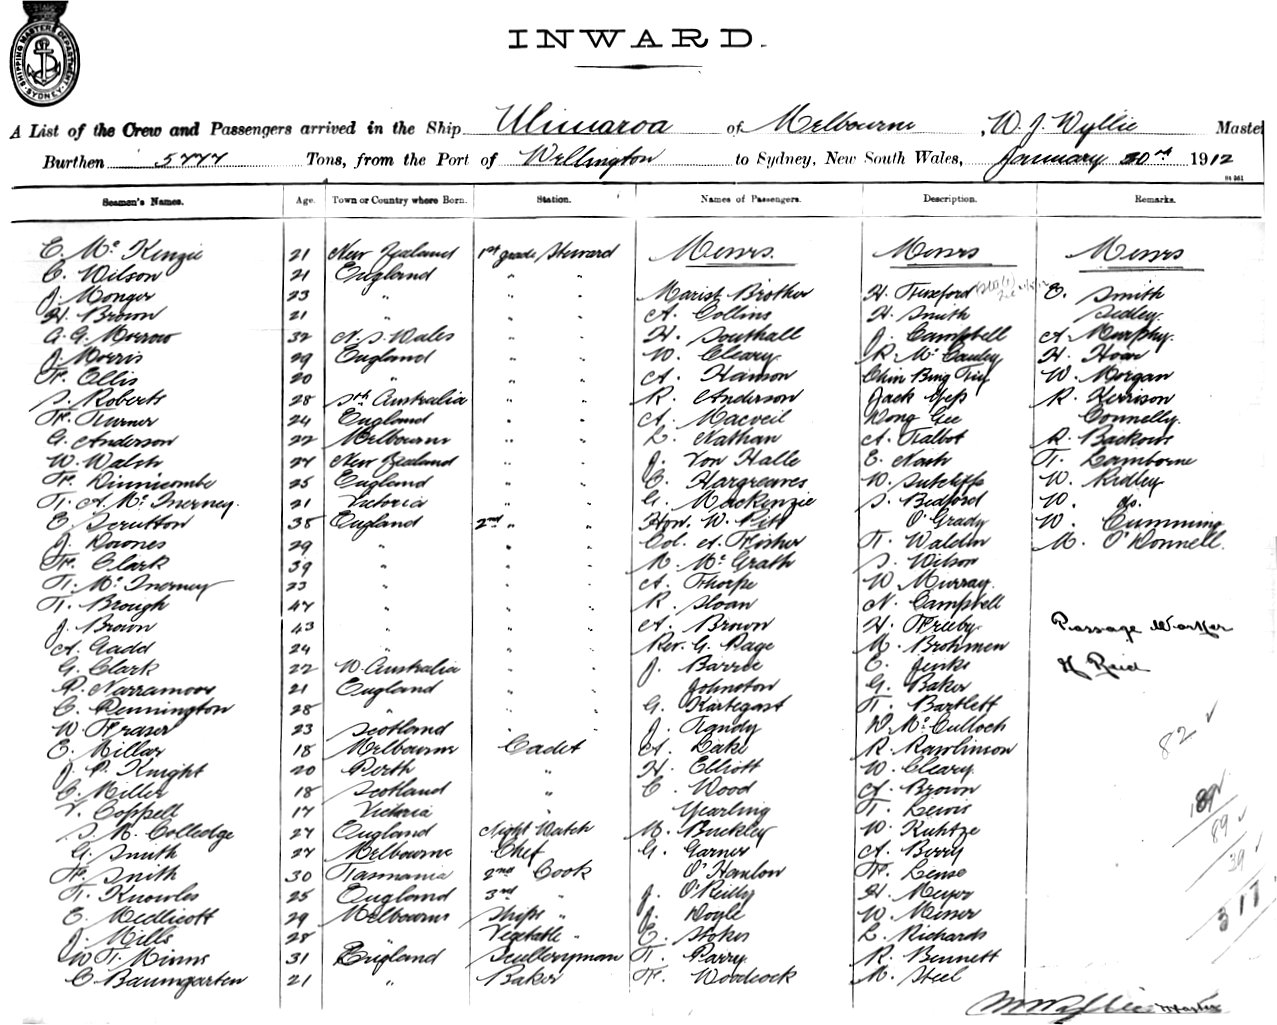 SHIPPING MASTERS DEPARTMENT SYDNEY
INWARD.
A List of the Crew and Passengers arrived in the Ship Ulimaroa of Melbourne, W. J. Wyllie Master
Burthen 5777 Tons, from the Port of Wellington to Sydney, New South Wales, January 1912
Seamen's Names. Age. Town or Country where Born. Station. Names of Passengers. Description. Remarks.
E. McKenzie 21 New Zealand 1st grade Steward Messrs. Messrs Messrs
C. Wilson 21 England " "
J. Monger 23 " " " Marist Brother H. Tuxford E. Smith
H. Brown 21 " " " A. Collins H. Smith Sidley
A. G. Morrow 32 N. S. Wales " " H. Southall J. Campbell A. Murphy
J. Morris 29 England " " W. Cleary R. McCauley H. Hoar
F. Ellis 20 " " " A. Hanson W. Morgan
S. Roberts 28 Sth Australia " " R. Anderson Jack Yep R. Kerrison
F. Turner 24 England " " A. Macveil Wong Gee Connelly
G. Anderson 22 Melbourne " " L. Nathan A. Talbot R. Backows
W. Walsh 27 New Zealand " " J. Von Halle E. Nash T. Lamborne
F. Dinnicombe 25 England " " E. Hargreaves W. Sutcliffe W. Ridley
T. A. McInerney 21 Victoria " " G. Mackenzie S. Bedford W. do.
E. Scrutton 38 England 2nd " " Hon. W. Pitt O'Grady W. Cumming
J. Downes 29 " " " Col. A. Fisher T. Waldin M. O'Donnell
F. Clark 39 " " " M. McGrath S. Wilson
T. McInerney 23 " " " A. Thorpe W. Murray
T. Brough 47 " " " R. Sloan N. Campbell
J. Brown 43 " " " A. Brown H. Frieby Passage Worker
A. Gadd 24 " " " Rev. G. Page M. Brohmen
G. Clark 22 W. Australia " " J. Barrie E. Jenks H. Reid
R. Narramoor 21 England " " Johnston G. Baker
C. Pennington 28 " " " G. Kartegast T. Bartlett
W. Fraser 23 Scotland " " J. Tandy W. McCulloch
E. Millar 18 Melbourne Cadet A. Lake R. Rawlinson 82
J. P. Knight 20 Perth " H. Elliott W. Cleary
C. Miller 18 Scotland " C. Wood A. Brown
V. Coppell 17 Victoria " Yearling T. Lewis 89
S. M. Colledge 27 England Night Watch M. Buckley W. Kuhtze 89
G. Smith 27 Melbourne Chef G. Garner A. Berry 39
F. Smith 30 Tasmania 2nd Cook O'Hanlon F. Lense
T. Knowles 25 England 3rd " J. O'Reilly H. Meyer
E. Medlicott 29 Melbourne Ships " J. Doyle W. Miner 317
J. Mills 28 " Vegetable " E. Stokes L. Richards
W. T. Minns 31 England Sculleryman T. Parry R. Bennett
C. Baumgarten 21 " Baker F. Woodcock M. Steel
W Wyllie Master